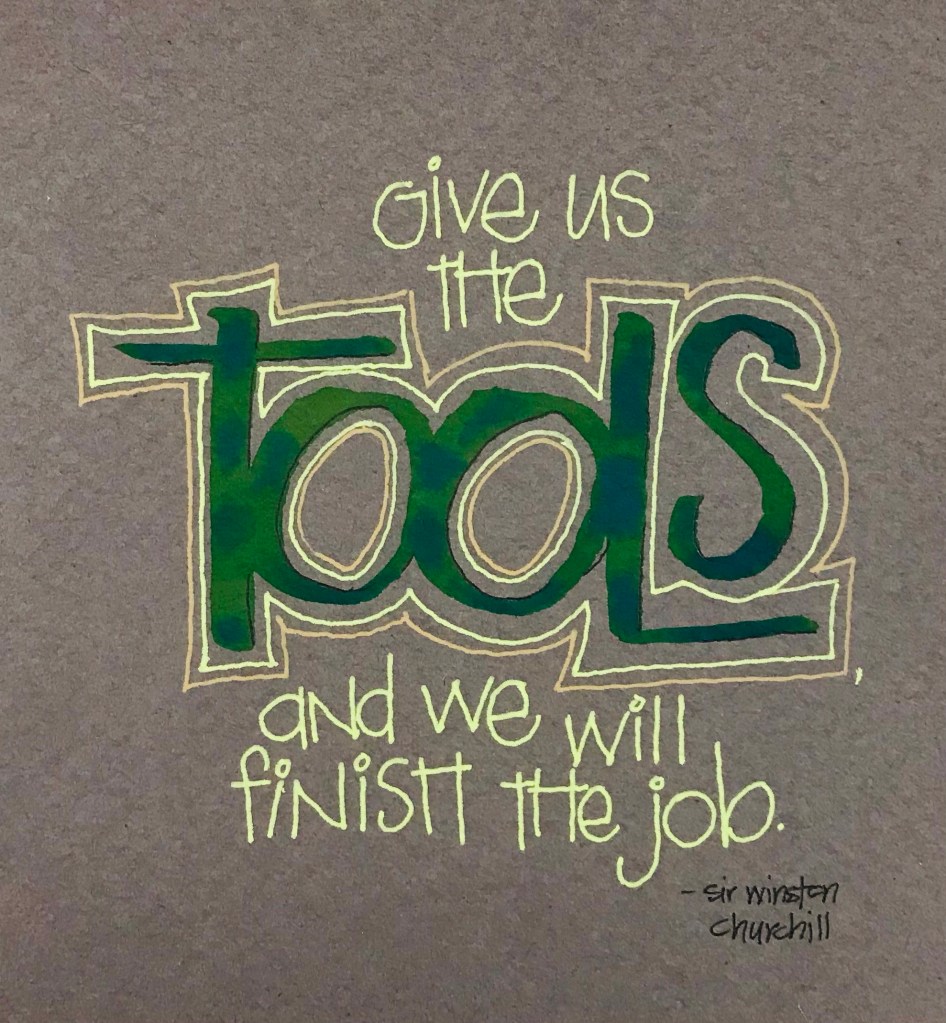 Give us
the
Tools,
and we will
finish the job.
- sir winston
churchill